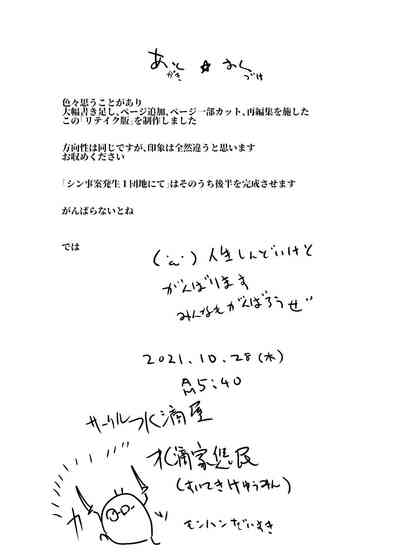 あとがき ☆ おくづけ
色々思うことがあり
大幅書き足し、ページ追加、ページ一部カット、再編集を施した
この「リテイク版」を制作しました
方向性は同じですが、印象は全然違うと思います
お収めください
「シン事案発生１団地にて」はそのうち後半を完成させます
がんばらないとね
では
(;´ω`) 人生しんどいけど
がんばります
みんなもがんばろうぜ
2021.10.28(木)
AM5:40
サークル水滴屋
水滴家悠民
(すいてきけゆうみん)
カ
モンハンだいすき